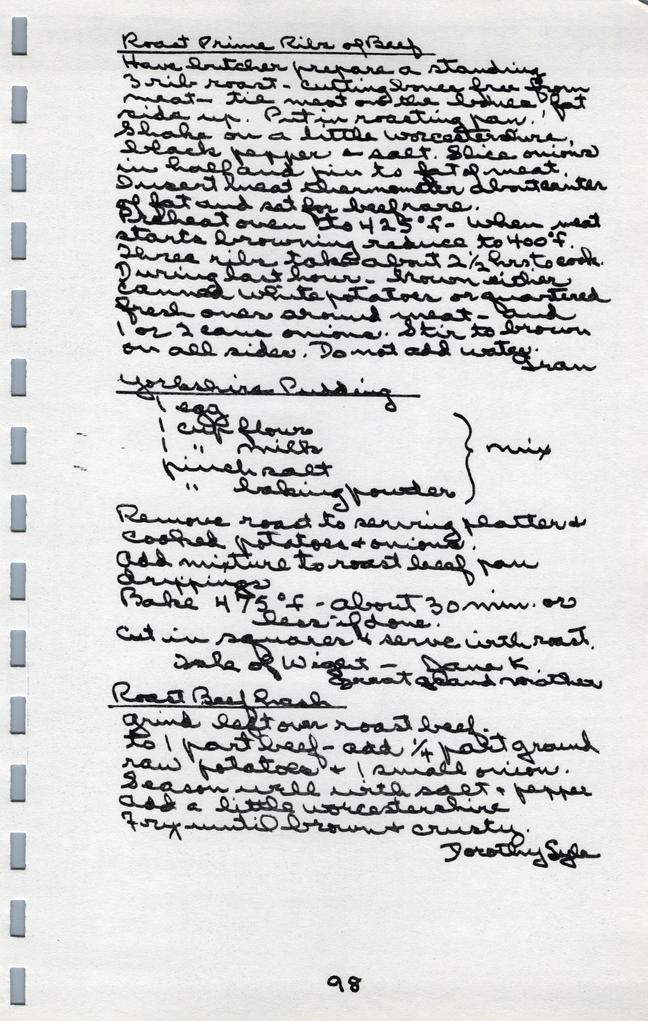 Roast Prime Ribs of Beef
Have butcher prepare a standing
3 rib roast - cutting bones free from
meat - tie meat on the bones, fat
side up. Put in roasting pan.
Shake on a little worcestershire,
black pepper & salt. Slice onions
in half and pin to fat of meat.
Insert meat thermometer about center
of fat and set for beef rare.
Preheat oven to 425°f - when meat
starts browning reduce to 400°f.
Three ribs take about 2 1/2 hrs to cook.
During last hour - brown either
canned white potatoes or quartered
fresh ones around meat - and
1 or 2 cans onions. Stir to brown
on all sides. Do not add water.
Fran
Yorkshire Pudding
1 egg
1 cup flour
1 " milk
pinch salt
" baking powder } mix
Remove roast to serving platter &
cooked potatoes & onions.
Add mixture to roast beef pan
drippings
Bake 475°f - about 30 min. or
less if done.
Cut in squares & serve with roast.
Isle of Wight - Jana K.
Great grand mother
Roast Beef Hash
Grind left over roast beef.
To 1 part beef - add 1/4 part ground
raw potatoes & 1 small onion.
Season well with salt & pepper
Add a little worcestershire
Fry until brown & crusty.
Dorothy
98